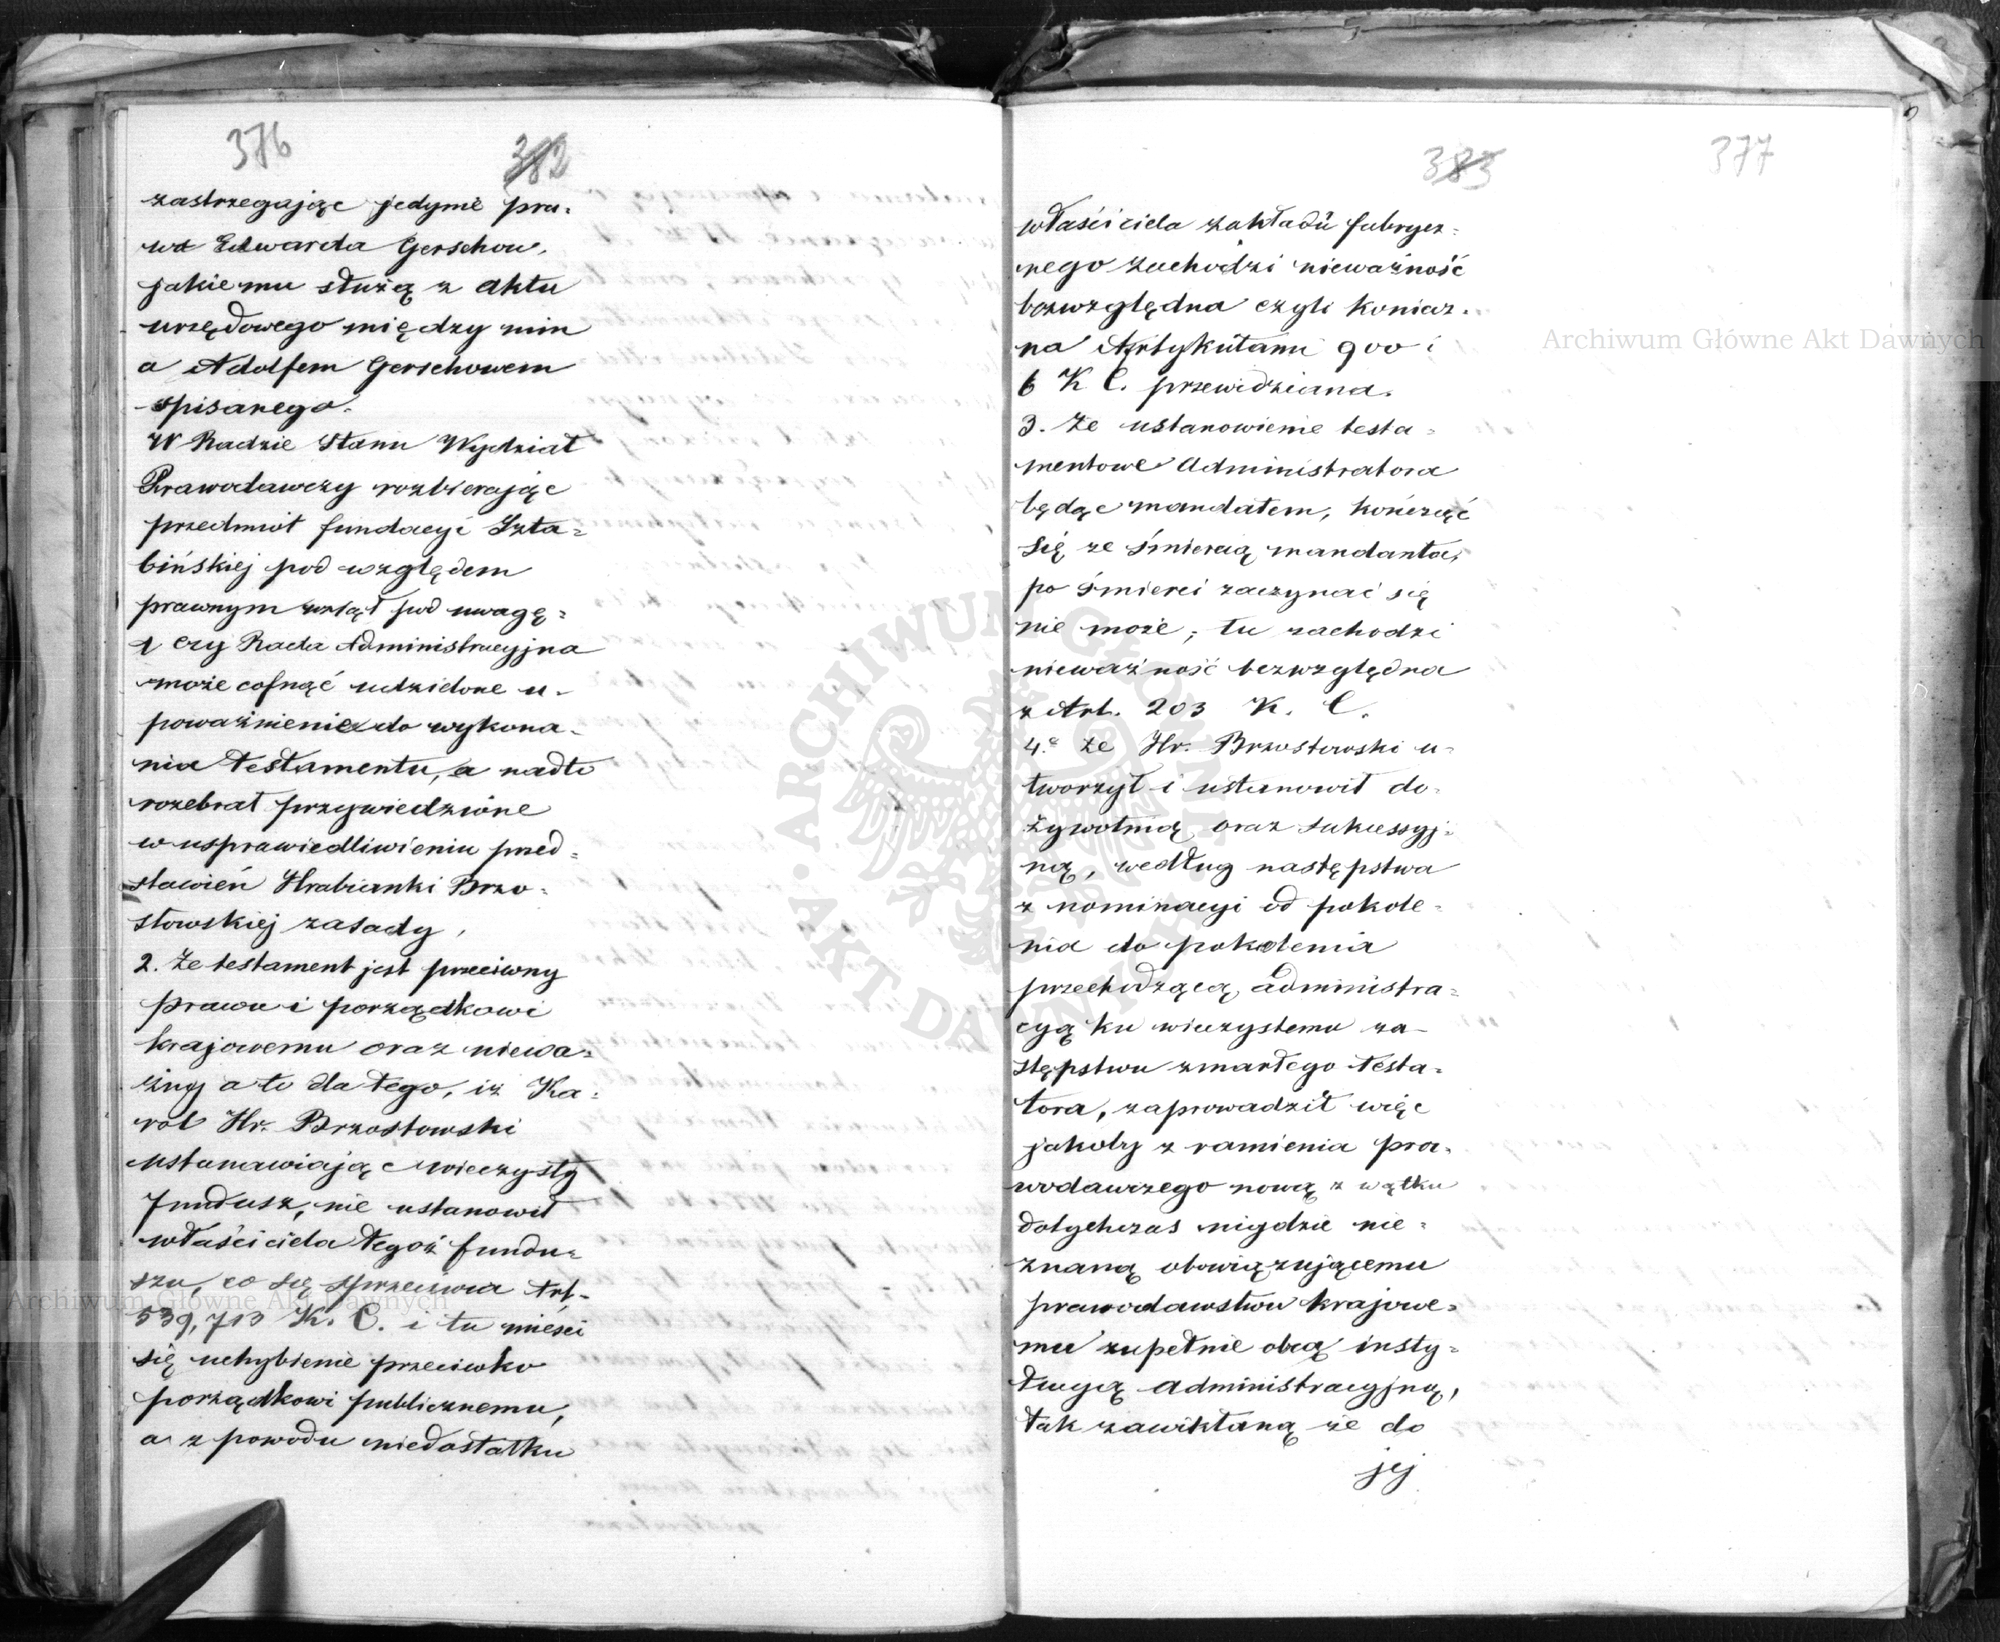 376
382
zastrzegając jedynie pra-
wa Edwarda Gerschow,
jakie mu służą z aktu
urzędowego między nim
a Adolfem Gerschowem
spisanego.
W Radzie Stanu Wydział
Prawodawczy rozbierając
przedmiot fundacyi Szta=
bińskiej pod względem
prawnym wziął pod uwagę=
1 czy Rada Administracyjna
może cofnąć udzielone u-
poważnienie do wykona-
nia testamentu, a nadto
rozebrał przywiedzione
w usprawiedliwieniu przed=
stawień Hrabianki Brzo-
stowskiej zasady,
2. że testament jest przeciwny
prawu i porządkowi
krajowemu oraz niewa=
żny a to dla tego, iż Ka=
rol Hr. Brzostowski
ustanawiając wieczysty
Fundusz, nie ustanowił
właściciela tegoż fundu=
szu, co się sprzeciwia Art-
539, 713 K. C. i tu mieści
się uchybienie przeciwko
porządkowi publicznemu,
a z powodu niedostatku
383
377
właściciela zakładu fabrycz=
nego zachodzi nieważność
bezwzględna czyli koniecz-
na Artykułami 900 i
6 K C. przewidziana.
3. że ustanowienie testa=
mentowe Administratora
będąc mandatem, kończąc
się ze śmiercią mandanta,
po śmierci zaczynać się
nie może; tu zachodzi
nieważność bezwzględna
z Art. 203 K. C.
4.e że Hr. Brzostowski u-
tworzył i ustanowił do-
żywotnią oraz sukcessyj=
ną, według następstwa
z nominacyi od pokole-
nia do pokolenia
przechodzącą administra=
cyą ku wieczystemu za-
stępstwu zmarłego testa=
tora, zaprowadził więc
jakoby z ramienia pra-
wodawczego nową z wątku
dotychczas nigdzie nie=
znaną obowiązującemu
prawodawstwu krajowe=
mu zupełnie obcą insty=
tucyą administracyjną,
tak zawikłaną że do
jej
Archiwum Główne Akt Dawnych
Archiwum Główne Akt Dawnych
ARCHIWUM GŁÓWNE AKT DAWNYCH